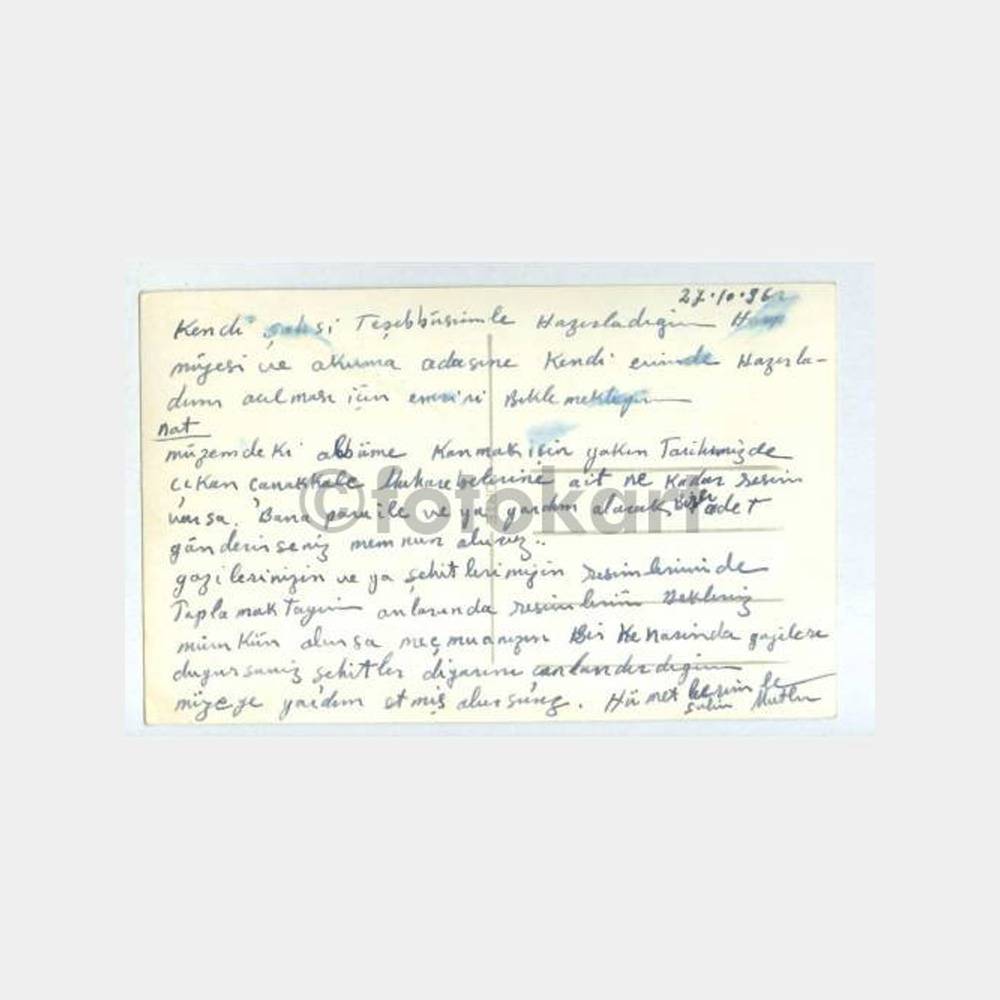 27.10.96
Kendi şahsi Teşebbüsümle Hazırladığım
müzesi ve okuma odasını Kendi evimde Hazırla-
dım açılması için emrini Beklemekteyim
Not
müzemdeki albüme Konmak için yakın Tarihimizde
çıkan çanakkale Muharebelerine ait ne kadar resim
varsa. Bana para ile ve ya yardım olarak adet
gönderirseniz memnun oluruz..
gazilerimizin ve ya şehitlerimizin resimlerinide
Toplamaktayım onlarında resimlerini Bekleriz
mümkün olursa meçmuanızın Bir Kenasında gazilere
duyursanız şehitler diyarını canlandırdığım
müzeye yardım etmiş olursunuz. Hürmetlerimle
Salim Mutlu
©fotokart